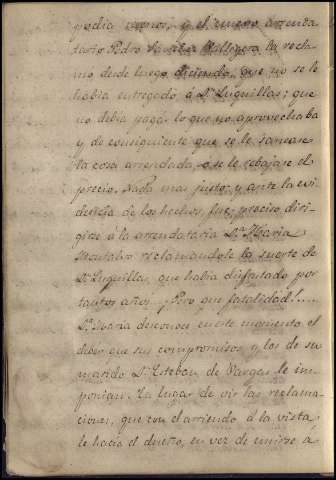 podia menos, y el nuevo arrenda
tario Pedro Garcia Mallijera la recla
mó desde luego diciendo, que no se le
habia entregado á Dª Luguillas; que
no debia pagar lo que no aprovechaba
y de consiguiente que se le sanease
la cosa arrendada, o se le rebajase el
precio. Nada mas justo; y ante la evi
dencia de los hechos, fué preciso diri
girse á la arrendataria Dª Maria
Montalvo reclamandole la suerte de
Dª Luguillas, que habia disfrutado por
tantos años. ¡Pero que fatalidad!....
Dª Maria desconoce en este momento el
deber que sus compromisos y los de su
marido Dn Esteban de Vargas le im
ponian. En lugar de oir las reclama
ciones, que con el arriendo á la vista
le hacia el dueño, en vez de unirse á